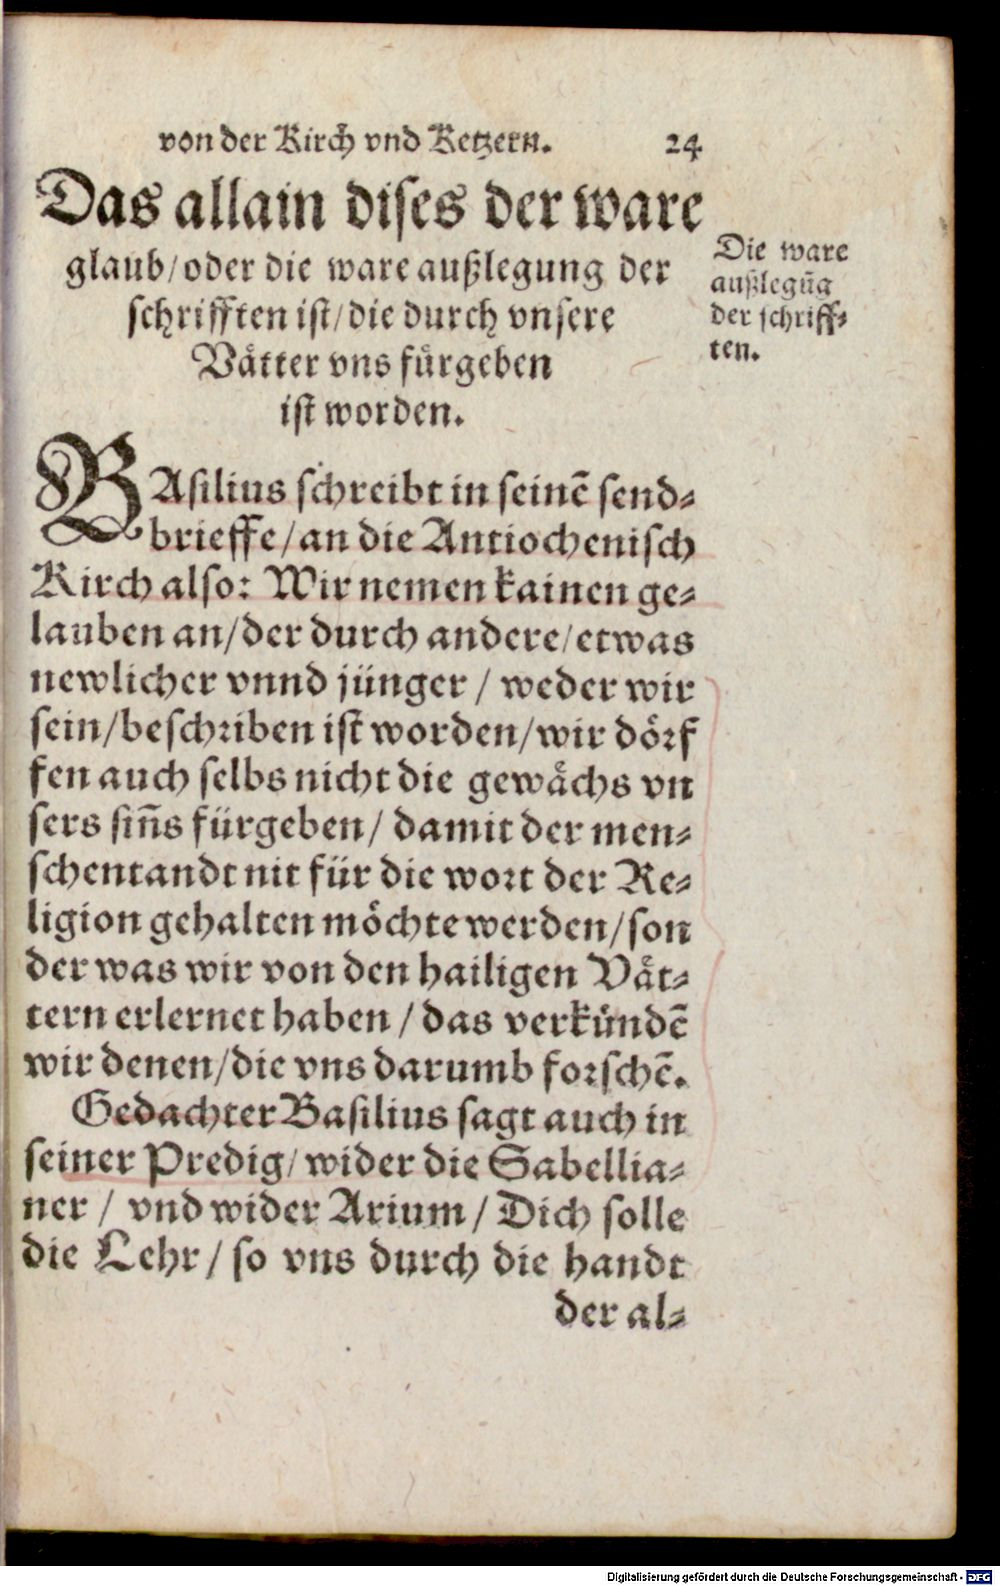 von der Kirch vnd Ketzern. 24
Das allain dises der ware
glaub/ oder die ware außlegung der
schrifften ist/ die durch vnsere
Vätter vns fürgeben
ist worden.
Die ware
außlegũg
der schriff-
ten.
BAsilius schreibt in seinẽ send-
brieffe/ an die Antiochenisch
Kirch also: Wir nemen kainen ge-
lauben an/ der durch andere/ etwas
newlicher vnnd jünger / weder wir
sein/ beschriben ist worden/ wir dörf
fen auch selbs nicht die gewächs vn
sers siñs fürgeben/ damit der men-
schentandt nit für die wort der Re-
ligion gehalten möchte werden/ son
der was wir von den hailigen Vät-
tern erlernet haben / das verkündẽ
wir denen/ die vns darumb forschẽ.
Gedachter Basilius sagt auch in
seiner Predig/ wider die Sabellia-
ner / vnd wider Arium / Dich solle
die Lehr / so vns durch die handt
der al-
Digitalisierung gefördert durch die Deutsche Forschungsgemeinschaft - DFG